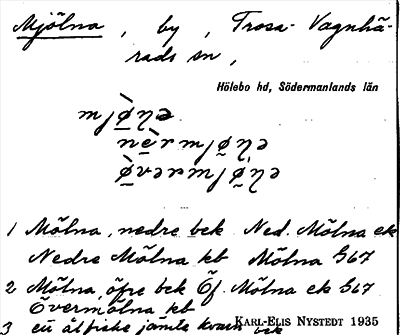 Mjölna, by, Trosa-Vagnhä-
rads sn,
Hölebo hd, Södermanlands län
mjø̀ɳə
nèrmjøɳə
ø̀vərmjø̀ɳə
1 Mölna, nedre bek Ned. Mölna ek
Nedre Mölna kb Mölna G67
2 Mölna, öfre bek Öf. Mölna ek G67
Övermölna kb
3 ett älfiske jämte kvarn bek
KARL-ELIS NYSTEDT 1935